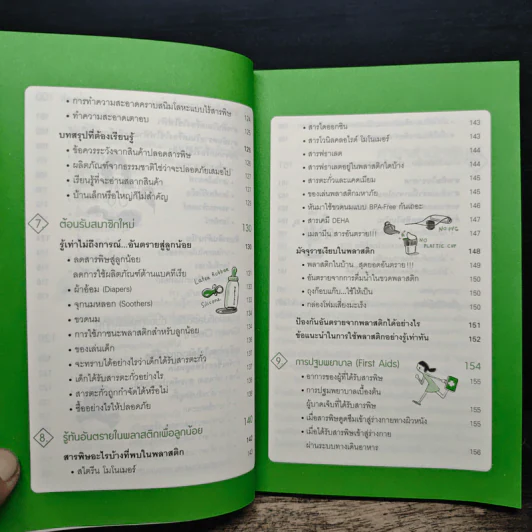 • การทำความสะอาดคราบสนิมโลหะแบบไร้สารพิษ
• ทำความสะอาดเตาอบ 126
บทสรุปที่ต้องเรียนรู้
• ข้อควรระวังจากสินค้าปลอดสารพิษ
• ผลิตภัณฑ์จากธรรมชาติใช่ว่าจะปลอดภัยเสมอไป
• เรียนรู้ที่จะอ่านสลากสินค้า
• บ้านเล็กหรือใหญ่ก็ไม่สำคัญ
7 ต้อนรับสมาชิกใหม่ 130
รู้เท่าไม่ถึงการณ์...อันตรายสู่ลูกน้อย
• ลดสารพิษสู่ลูกน้อย
ลดการใช้ผลิตภัณฑ์ต้านแบคทีเรีย
• ผ้าอ้อม (Diapers)
• จุกนมหลอก (Soothers)
• ขวดนม
• การใช้ภาชนะพลาสติกสำหรับลูกน้อย
• ของเล่นเด็ก
• จะทราบได้อย่างไรว่าเด็กได้รับสารตะกั่ว
• เด็กได้รับสารตะกั่วอย่างไร
• สารตะกั่วถูกกำจัดได้หรือไม่
• ซื้ออย่างไรให้ปลอดภัย
8 รู้ทันอันตรายในพลาสติกเพื่อลูกน้อย 140
สารพิษอะไรบ้างที่พบในพลาสติก 142
• สไตรีน โมโนเมอร์
• สารไดออกซิน 143
• สารไวนิลคลอไรด์ โมโนเมอร์ 143
• สารฟธาเลต 144
• สารฟธาเลตอยู่ในพลาสติกใดบ้าง 144
• สารตะกั่วและแคดเมียม 145
• ของเล่นพลาสติกมหาภัย 145
• หันมาใช้ขวดนมแบบ BPA-Free กันเถอะ 146
• สารเคมี DEHA
• เมลามีน สารอันตราย!!!
NO PLASTIC CUP
มัจจุราชเงียบในพลาสติก 148
• พลาสติกในบ้าน...สุดยอดอันตราย!!! 149
• อันตรายจากการดื่มน้ำในขวดพลาสติก 150
• ถุงก๊อบแก๊บ...ใช้ให้เป็น 150
• กล่องโฟมเสี่ยงมะเร็ง 150
ป้องกันอันตรายจากพลาสติกได้อย่างไร 151
ข้อแนะนำในการใช้พลาสติกอย่างรู้เท่าทัน 152
9 การปฐมพยาบาล (First Aids) 154
• อาการของผู้ที่ได้รับสารพิษ 155
• การปฐมพยาบาลเบื้องต้น
ผู้บาดเจ็บที่ได้รับสารพิษ 155
• เมื่อสารพิษดูดซึมเข้าสู่ร่างกายทางผิวหนัง 155
• เมื่อได้รับสารพิษเข้าสู่ร่างกาย
ผ่านระบบทางเดินอาหาร 156